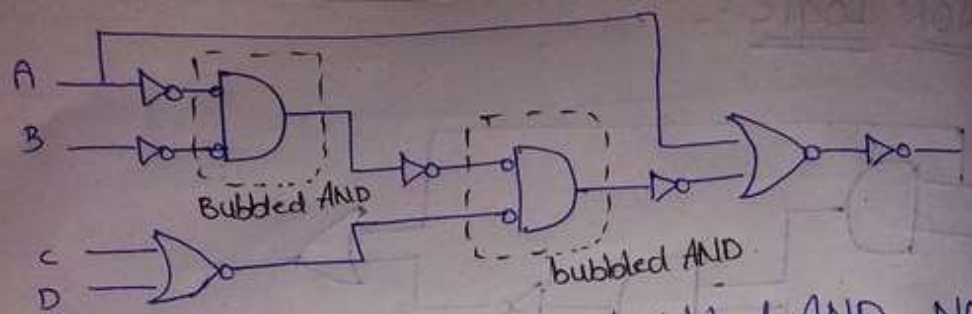 A
B
Bubbled AND
C
D
bubbled AND
AND